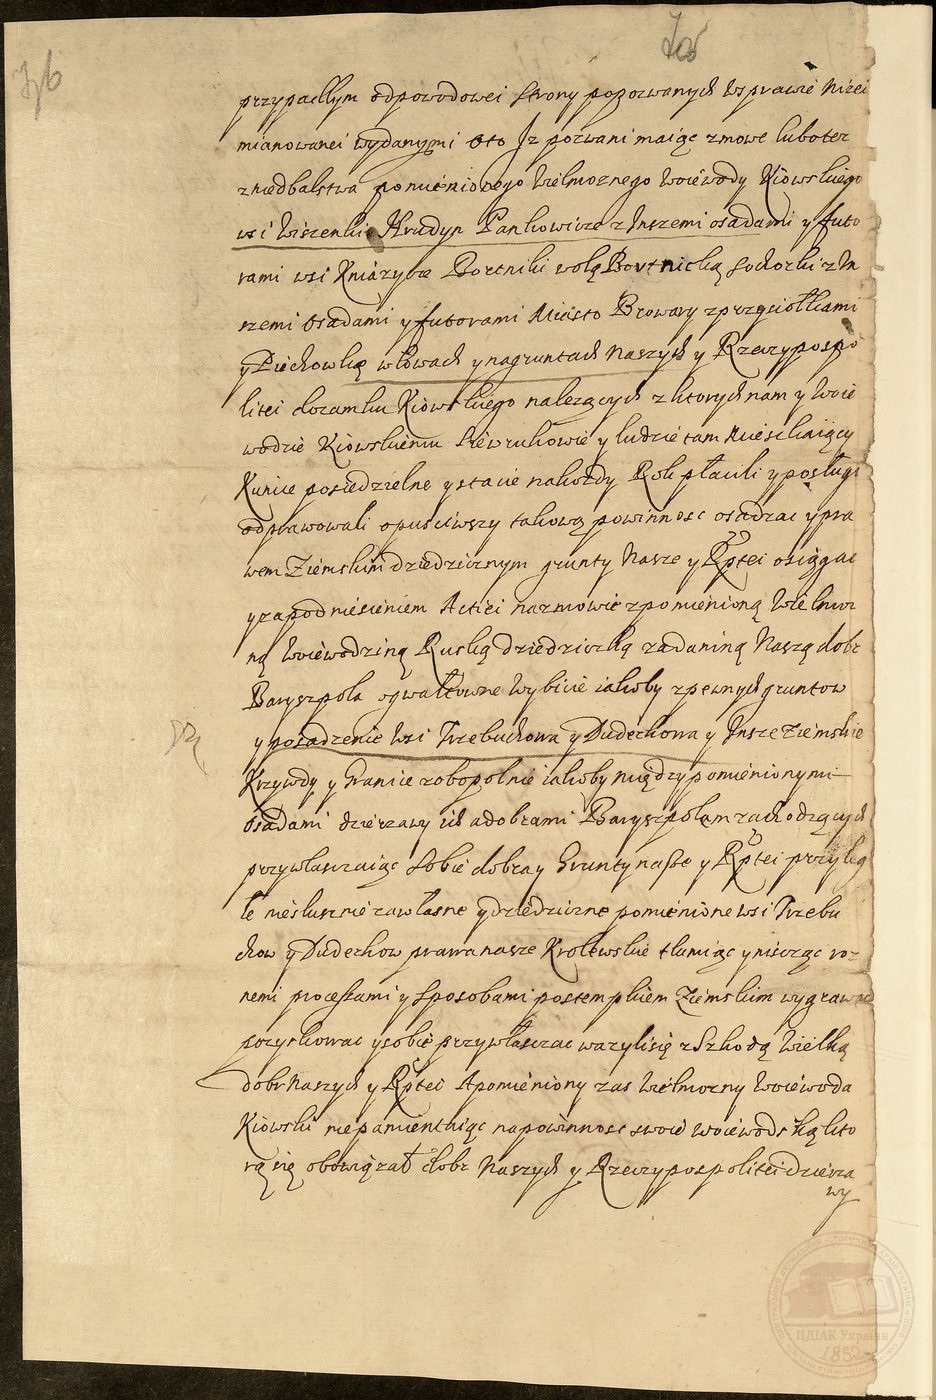 376
przypadłym odpowodowei strony pozwanych wsprawie niżei
mianowanei wydanymi oto Jz pozwani maiąc zmowe lubotez
zniedbalstwa pomienionego wielmoznego woiewody Kiowskiego
wsi Wiszenki Hrudyn Pankowicze z Inszemi osadami y futo
rami wsi Kniazycze Bortniki wolą Bortnicką sochorki z In
szemi osadami y futorami Miasto Browary zprzysiołkami
y Piechowkę włowach y nagruntach naszych y Rzeczypospo
litei dozamku Kiowskiego nalezących z ktorych nam y woie
wodzie Kiowskiemu siewrukowie y ludzie tam miesckaiący
Kunice posiedzielne y stacie nakozdy Rok płacili y posługi
odprawowali opusciwszy takową powinnosc osadzac y pra
wem Ziemskim dziedzicznym grunty nasze y Rptei osięgac
y zapodniesieniem Actiei nazmowie zpomienioną wielmoz
ną woiewodziną Ruską dziedziczką zadaniną naszą dobr
Baryszpola ogwałtowne wybicie iakoby zpewnych gruntow
y posadzenie wsi Trzebuchowa y Dudechowa y Insze ziemskie
Krzywdy y Granice zobopolnie iakoby międzypomienionymi
osadami dzierzawy ich adobrami Baryszpolem zachodzących
przywłaszczaiąc sobie dobra y Grunty nasze y Rptei przyleg
łe niesłusznie zawłasne y dziedziczne pomienione wsi Trzebu
chow y Dudechow prawa nasze Krolewskie tłumiąc y niszcząc roz
nemi processami y sposobami postempkiem Ziemskim wygrawac
pozyskowac y sobie przywłaszczac wazylisię z Szkodą wielką
dobr naszych y Rptei A pomieniony zas wielmozny woiewoda
Kiowski niepamientaiąc napowinnosc swoie woiewodską kto
rą się obowiązał dobr naszych y Rzeczypospolitei dzierza
wy
ЦДІАК України
1852